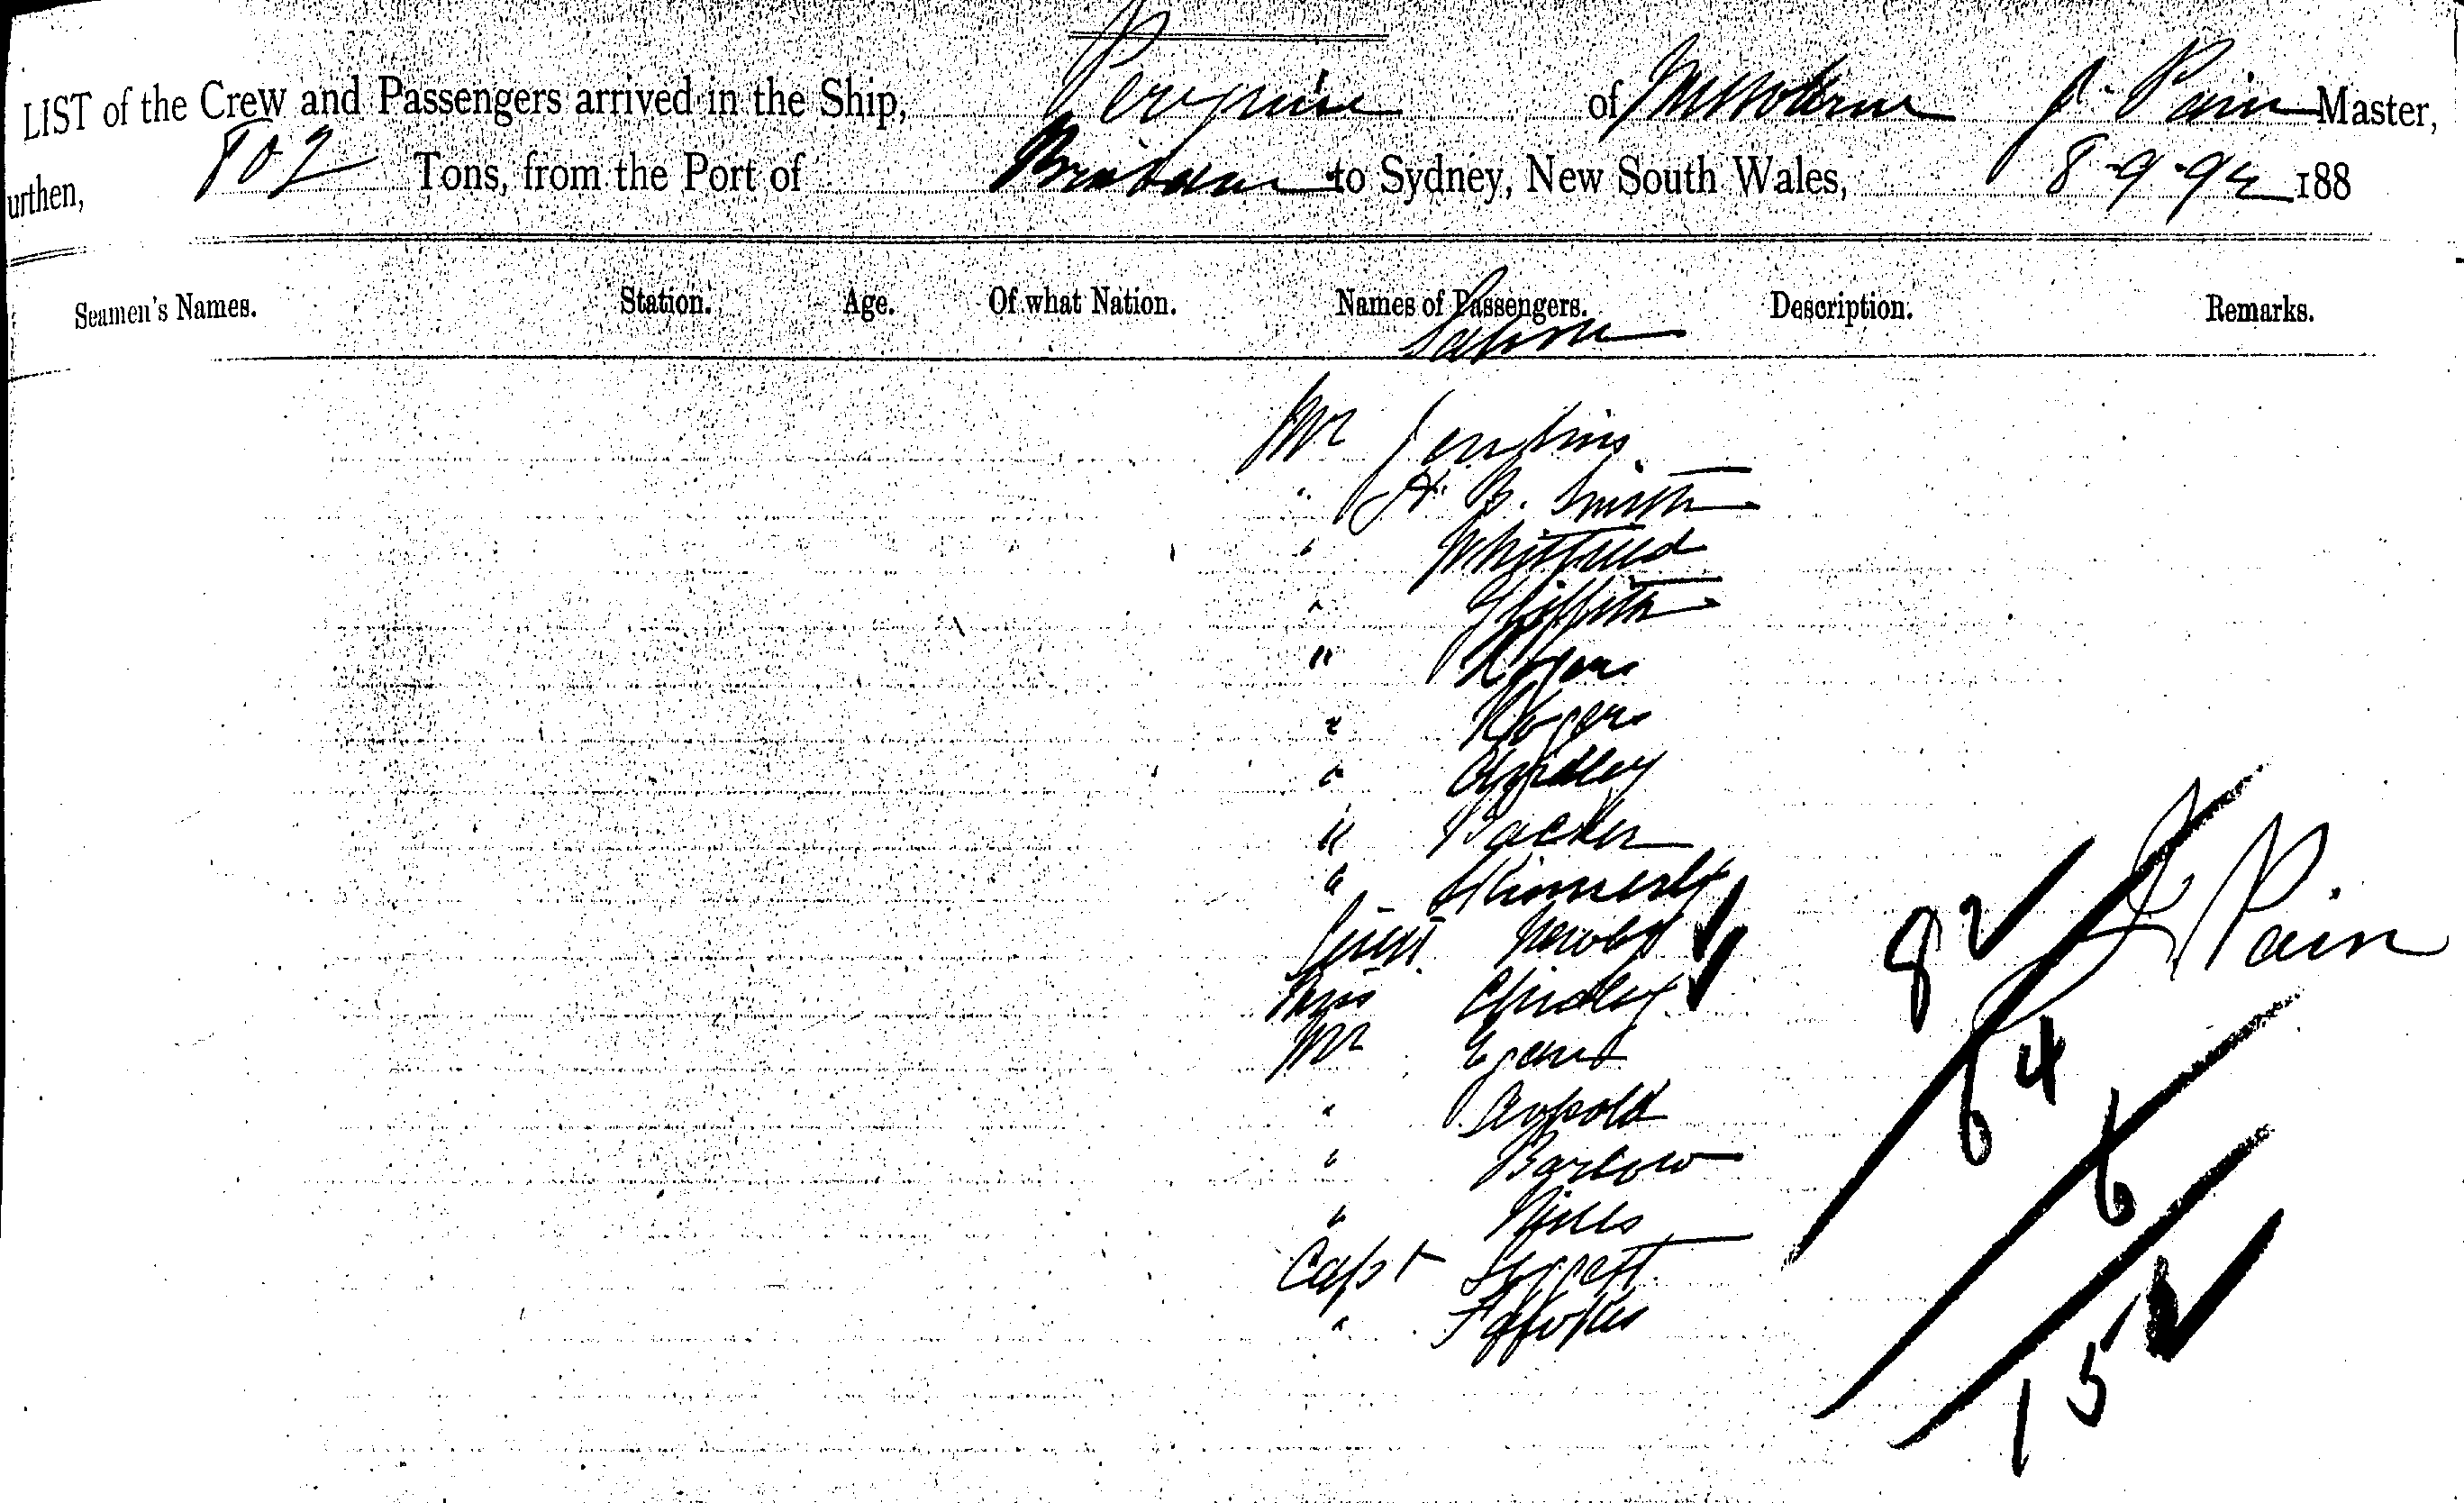 LIST of the Crew and Passengers arrived in the Ship, Peregrine of Melbourne J. Pain Master,
urthen, 802 Tons, from the Port of Brisbane to Sydney, New South Wales, 8-9-94 188
Seamen's Names. Station. Age. Of what Nation. Names of Passengers. Description. Remarks.
Saloon
Mr Jenkins
" H. B. Smith
" Whitfield
" Griffith
" Rogers
" Rogers
" Chidley
" Backer
"
Lieut
Chidley
Mr
" Leopold
" Barlow
"
Capt Leggett
"
J Pain
82
64
6
152